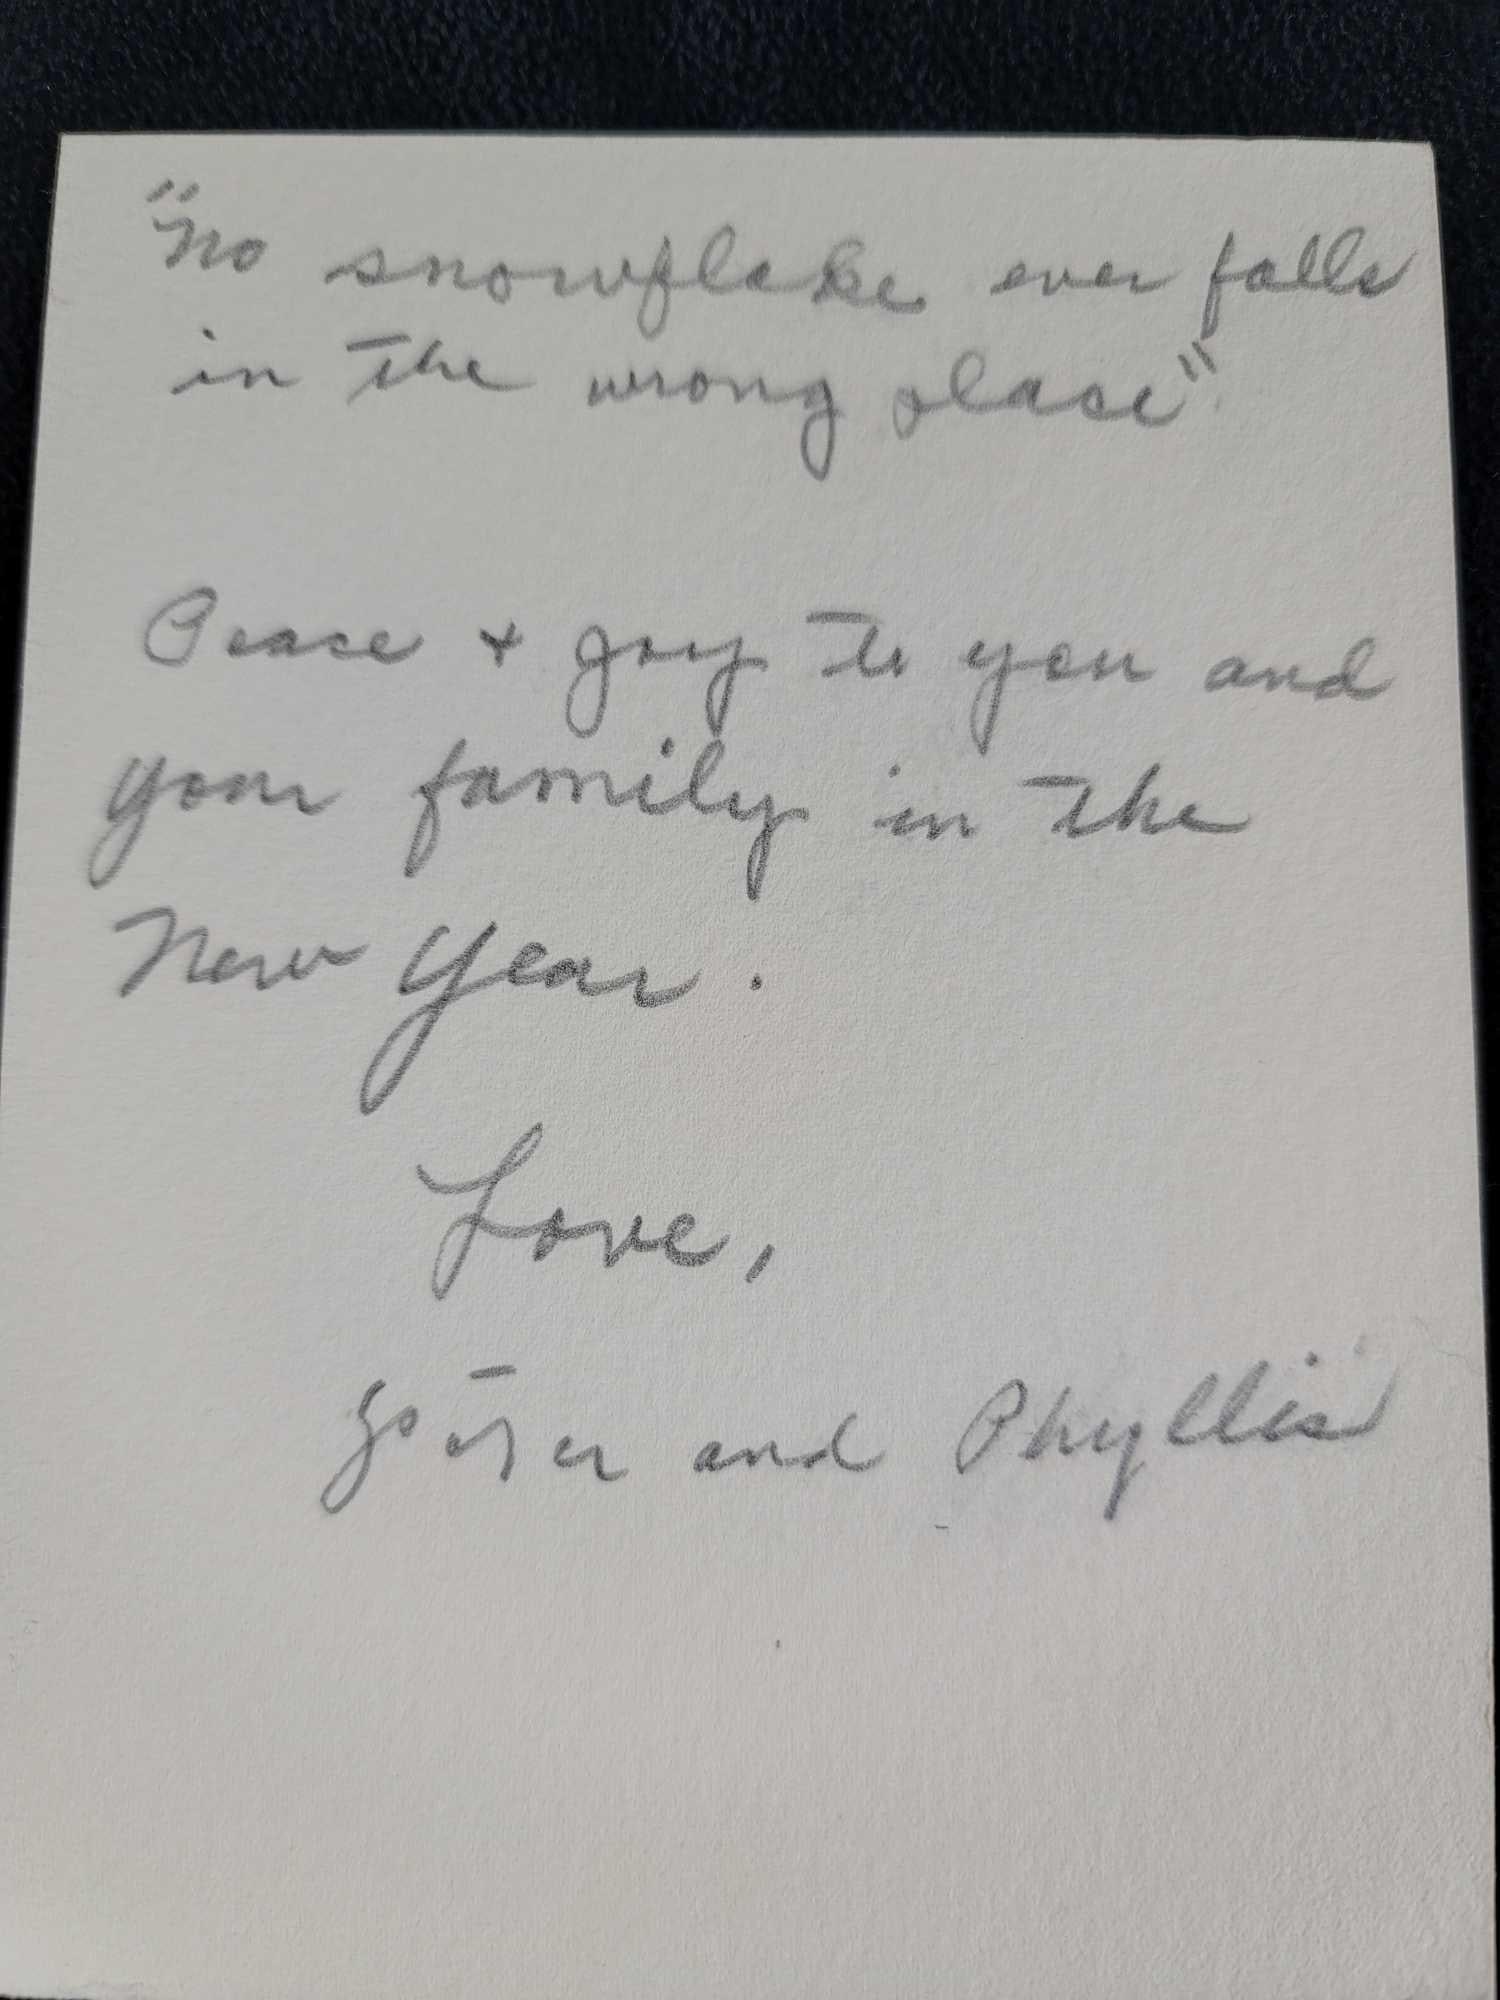 "No snowflake ever falls
in the wrong place"
Peace + joy to you and
your family in the
New Year.
Love,
and Phyllis